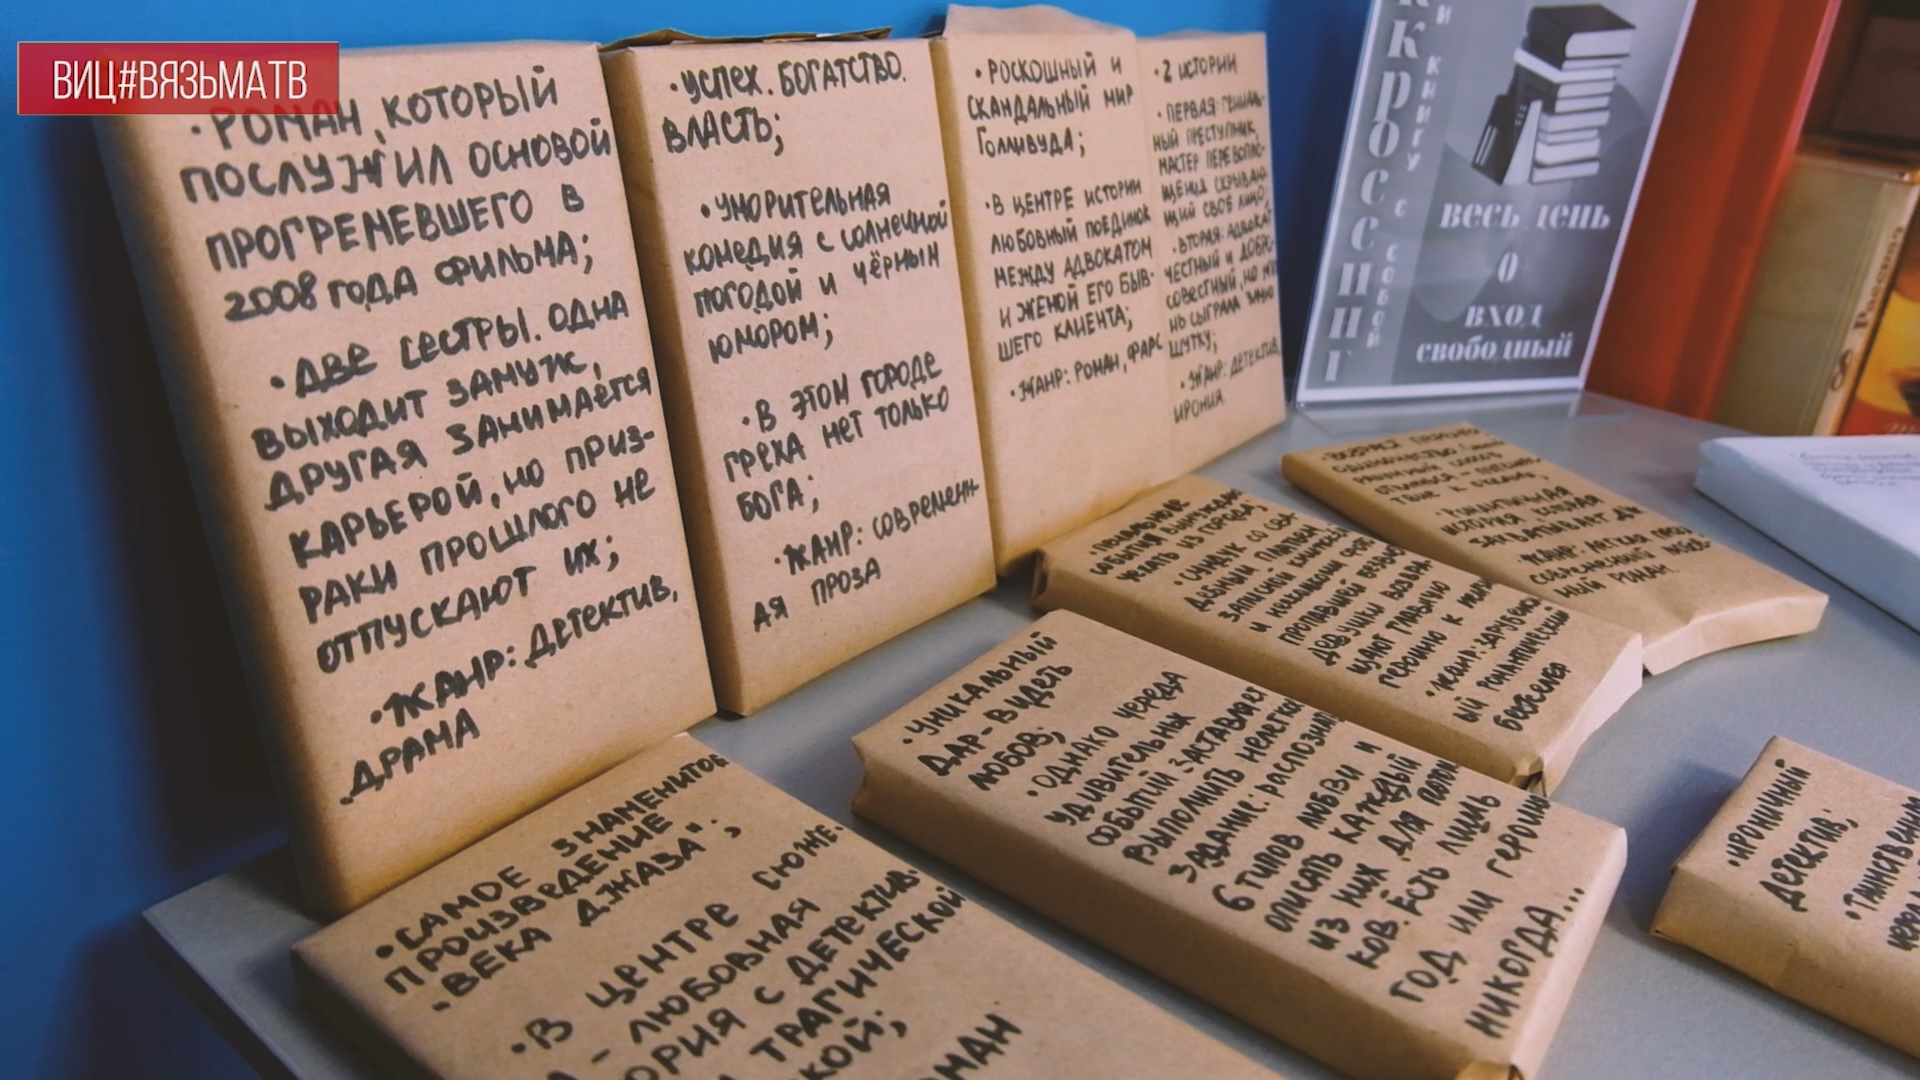 ВИЦ#ВЯЗЬМАТВ
• РОМАН, КОТОРЫЙ
ПОСЛУЖИЛ ОСНОВОЙ
ПРОГРЕМЕВШЕГО В
2008 ГОДА ФИЛЬМА;
• ДВЕ СЕСТРЫ. ОДНА
ВЫХОДИТ ЗАМУЖ,
ДРУГАЯ ЗАНИМАЕТСЯ
КАРЬЕРОЙ, НО ПРИЗ-
РАКИ ПРОШЛОГО НЕ
ОТПУСКАЮТ ИХ;
• ЖАНР: ДЕТЕКТИВ,
ДРАМА
• УСПЕХ. БОГАТСТВО.
ВЛАСТЬ;
• УМОРИТЕЛЬНАЯ
КОМЕДИЯ С СОЛНЕЧНОЙ
ПОГОДОЙ И ЧЁРНЫМ
ЮМОРОМ;
• В ЭТОМ ГОРОДЕ
ГРЕХА НЕТ ТОЛЬКО
БОГА;
• ЖАНР: СОВРЕМЕНН-
АЯ ПРОЗА
• РОСКОШНЫЙ И
СКАНДАЛЬНЫЙ МИР
ГОЛЛИВУДА;
• В ЦЕНТРЕ ИСТОРИИ
ЛЮБОВНЫЙ ПОЕДИНОК
МЕЖДУ АДВОКАТОМ
И ЖЕНОЙ ЕГО БЫВ-
ШЕГО КЛИЕНТА;
• ЖАНР: РОМАН, ФАРС
• 2 ИСТОРИИ
• ПЕРВАЯ: ГЕНИАЛЬ-
НЫЙ ПРЕСТУПНИК,
МАСТЕР ПЕРЕВОПЛО-
ЩЕНИЯ СКРЫВАЮ-
ЩИЙ СВОЁ ЛИЦО;
• ВТОРАЯ: АДВОКАТ
ЧЕСТНЫЙ И ДОБРО-
СОВЕСТНЫЙ, НО
СЫГРАЛА ЗЛУЮ
ШУТКУ;
• ЖАНР: ДЕТЕКТИВ,
ИРОНИЯ.
КРОССИНГ
И КНИГУ С СОБОЙ
весь день
0
вход
свободный
РОМАНТИЧНАЯ
ИСТОРИЯ, КОТОРАЯ
ЗАХВАТЫВАЕТ ДУХ
ЖАНР: ЛЕГКАЯ ПРОЗА
СОВРЕМЕННЫЙ ЛЮБОВ-
НЫЙ РОМАН.
СОБЫТИЯ ВЫНУЖДАЮТ
УЕХАТЬ ИЗ ГОРОДА;
• СУНДУК СО СВА-
ДЕБНЫМ ПЛАТЬЕМ
ЗАПИСНОЙ КНИЖКОЙ
И НЕСКОЛЬКИМИ ФОТО
ПРОПАВШЕЙ
ДЕВУШКИ
ГЛАВНУЮ
ГЕРОИНЮ К
• ЖАНР: ЗАРУБЕЖН
ЫЙ РОМАНТИЧЕСКИЙ
• УНИКАЛЬНЫЙ
ДАР – ВИДЕТЬ
ЛЮБОВЬ;
• ОДНАКО ЧЕРЕДА
УДИВИТЕЛЬНЫХ
СОБЫТИЙ ЗАСТАВЛЯЕТ
ВЫПОЛНИТЬ НЕЛЕГКОЕ
ЗАДАНИЕ: РАСПОЗНАТЬ
6 ТИПОВ ЛЮБВИ И
ОПИСАТЬ КАЖДЫЙ
ИЗ НИХ ДЛЯ ПОТОМ
КОВ. ЕСТЬ ЛИШЬ
ГОД, ИЛИ ГЕРОИНЯ
НИКОГДА...
• САМОЕ ЗНАМЕНИТОЕ
ПРОИЗВЕДЕНИЕ
"ВЕКА ДЖАЗА";
• В ЦЕНТРЕ СЮЖЕ-
А – ЛЮБОВНАЯ
ОРИЯ С ДЕТЕКТИВ-
И ТРАГИЧЕСКОЙ
КОЙ;
ОМАН
• ИРОНИЧНЫЙ
ДЕТЕКТИВ;